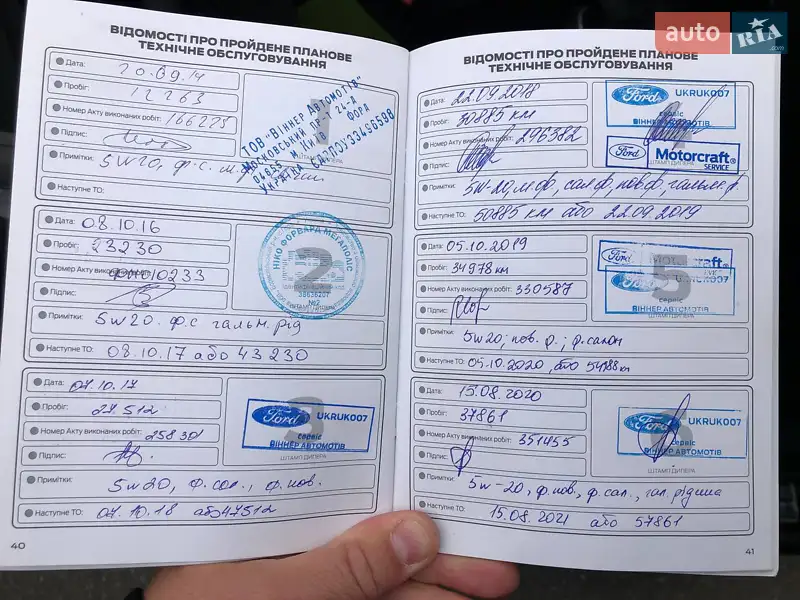 auto RIA.com
ВІДОМОСТІ ПРО ПРОЙДЕНЕ ПЛАНОВЕ
ТЕХНІЧНЕ ОБСЛУГОВУВАННЯ
Дата: 20.09.14
Пробіг: 12263
Номер Акту виконаних робіт: 166225
Підпис:
Примітки: 5W20, ф.с.
Наступне ТО:
1
ТОВ "ВІННЕР АВТОМОТІВ"
МОСКОВСЬКИЙ ПР-Т 24-А
Дата: 08.10.16
Пробіг: 23230
Номер Акту виконаних робіт: 10233
Підпис:
Примітки: 5w20. ф.с гальм. рід
Наступне ТО: 08.10.17 або 43 230
2
НІКО ФОРВАРД МЕГАПОЛІС
№2
ШТАМП ДИЛЕРА
Дата: 07.10.17
Пробіг: 27512
Номер Акту виконаних робіт: 258301
Підпис:
Примітки: 5w20, ф.сал., ф.пов.
Наступне ТО: 07.10.18 або 47512
3
Ford UKRUK007
сервіс
ВІННЕР АВТОМОТІВ
ШТАМП ДИЛЕРА
40
ВІДОМОСТІ ПРО ПРОЙДЕНЕ ПЛАНОВЕ
ТЕХНІЧНЕ ОБСЛУГОВУВАННЯ
Дата: 22.09.2018
Пробіг: 30885 км
Номер Акту виконаних робіт: 296382
Підпис:
Примітки: 5w-20, м.ф, сал.ф, пов.ф, гальм.р.
Наступне ТО: 50885 км або 22.09.2019
Ford UKRUK007
сервіс
ВІННЕР АВТОМОТІВ
Ford Motorcraft
SERVICE
ШТАМП ДИЛЕРА
Дата: 05.10.2019
Пробіг: 34978 км
Номер Акту виконаних робіт: 330587
Підпис:
Примітки: 5w20; пов. ф.; ф.салон
Наступне ТО: 05.10.2020, або 54988 км
5
Ford Motorcraft
Ford UKRUK007
сервіс
ВІННЕР АВТОМОТІВ
ШТАМП ДИЛЕРА
Дата: 15.08.2020
Пробіг: 37861
Номер Акту виконаних робіт: 351455
Підпис:
Примітки: 5w-20, ф.пов., ф.сал., гал. рідина
Наступне ТО: 15.08.2021 або 57861
6
Ford UKRUK007
сервіс
ВІННЕР АВТОМОТІВ
ШТАМП ДИЛЕРА
41